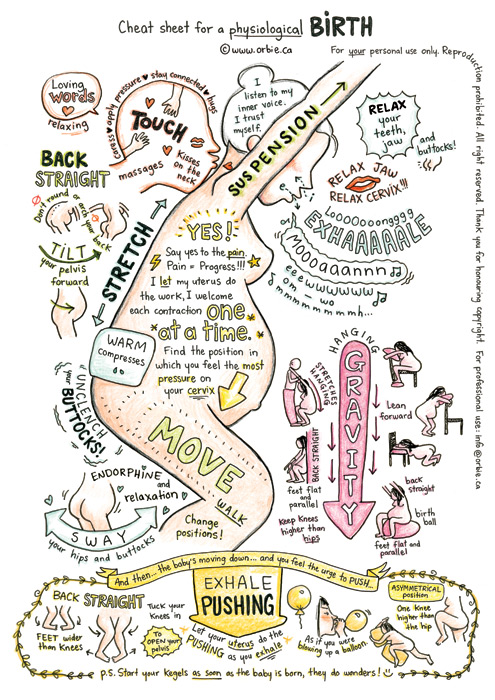 Cheat sheet for a physiological BiRTH
©www.orbie.ca
For your personal use only. Reproduction prohibited. All right reserved. Thank you for honouring copyright. For professional use: info@orbie.ca
Loving
words
relaxing
caress ♥ apply pressure ♥ stay connected ♥ hugs
TOUCH
massages
Kisses
on the
neck
I
listen to my
inner voice.
I trust
myself.
SUSPENSION
RELAX
your
teeth,
jaw
and
buttocks!
RELAX JAW
RELAX CERVIX!!!
BACK
STRAIGHT
Don't round or arch your back
TILT
your pelvis
forward
STRETCH
Looooooongggg
EXHAAAAAALE
Moooaaannn
eeewwwwww
om - wo
mmmmmmmmh...
YES!
Say yes to the pain.
Pain = Progress!!!
I let my uterus do
the work, I welcome
each contraction one
at a time.
Find the position in
which you feel the most
pressure on
your cervix
WARM
compresses
UNCLENCH
your BUTTOCKS!
MOVE
WALK
Change
positions!
ENDORPHiNE and
relaxation
SWAY
your hips and buttocks
HANGING
GRAVITY
STRETCHES
HANGING
BACK STRAIGHT
feet flat
and
parallel
Keep Knees
higher than
hips
Lean
forward
back
straight
birth
ball
feet flat and
parallel
And then... the baby's moving down... and you feel the urge to PUSH...
EXHALE
PUSHING
BACK STRAIGHT
FEET wider
than Knees
Tuck your
Knees in
To
OPEN your
pelvis
Let your uterus do the
PUSHING as you exhale
As if you were
blowing up a balloon.
ASYMETRICAL
position
One Knee
higher than
the hip
P.S. Start your Kegels as soon as the baby is born, they do wonders!